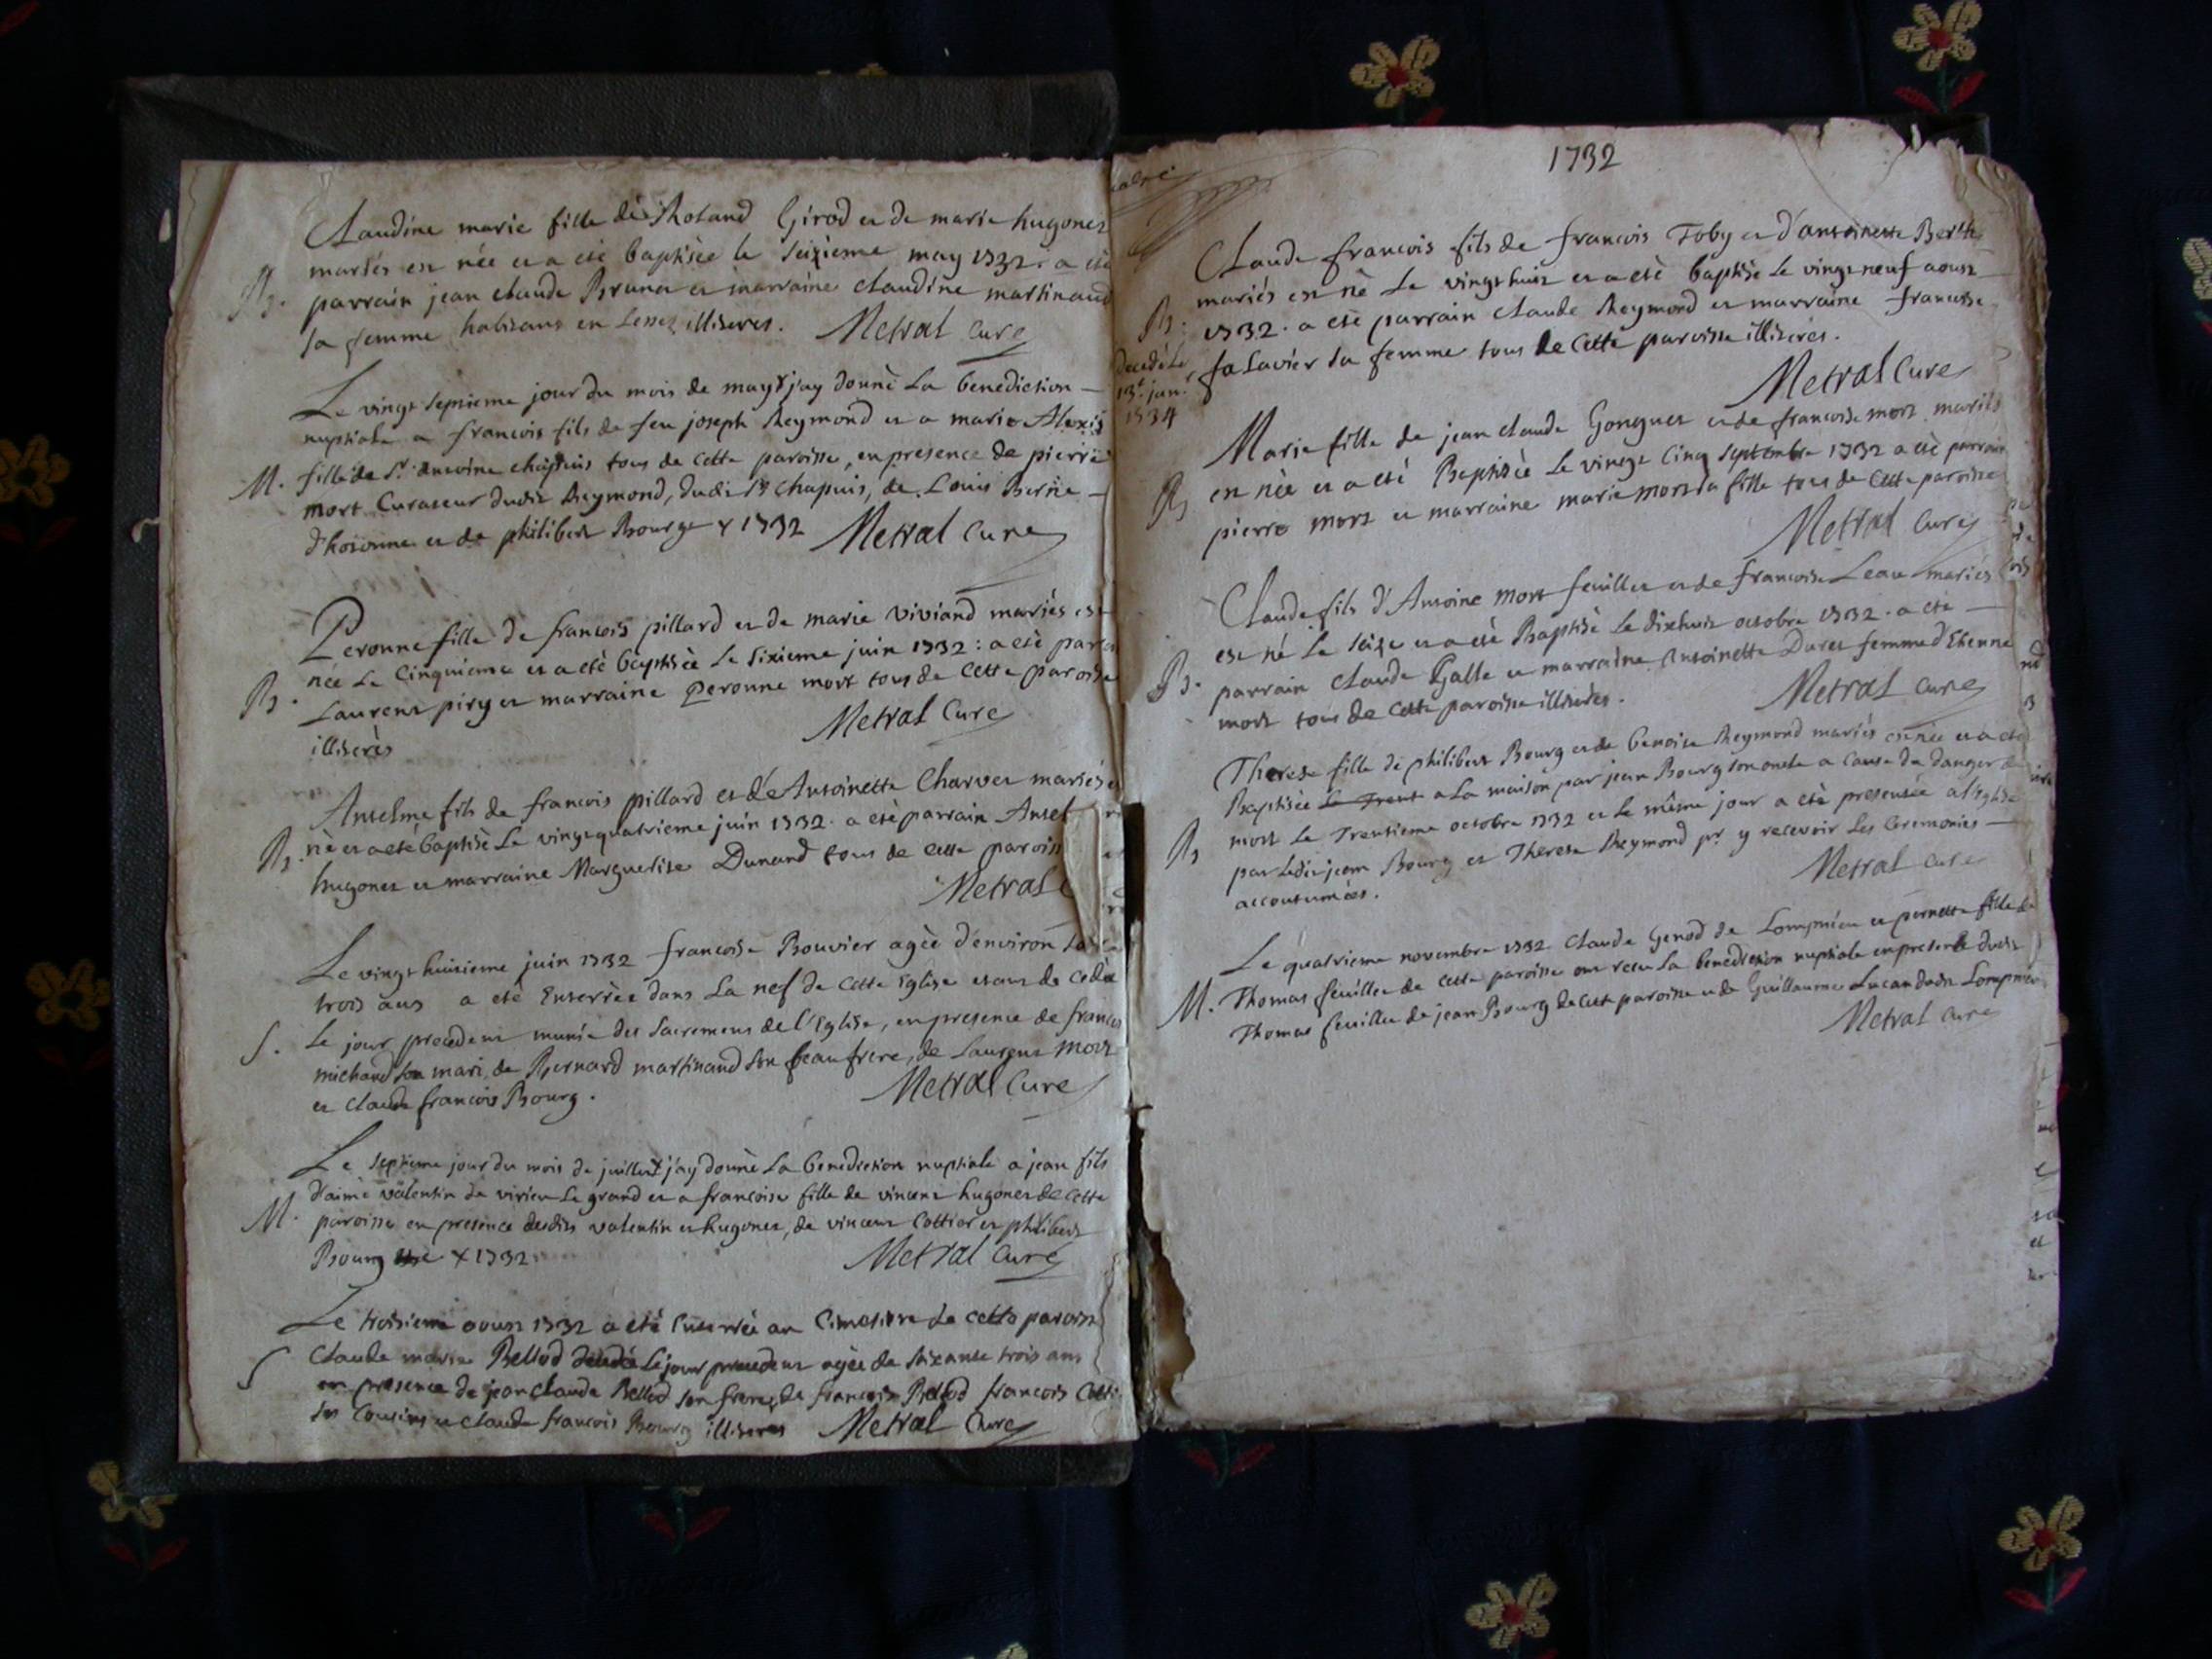 Claudine marie fille de Roland Girod et de marie hugonet
mariés est née et a eté baptisèe le seizieme may 1732. a eté
B. parrain jean claude Brunet et marraine claudine martinand
sa femme habitans en illiterés. Metral Curé
Le vingt septieme jour du mois de may j'ay donnè la benediction
nuptiale a francois fils de feu joseph Reymond et a marie Alexis
M. fille de Sr. antoine chapuis tous de cette paroisse, en presence de pierre
mort Curateur dudit Reymond, dudit Sr Chapuis, de Louis Berne
et de philibert Bourg + 1732 Metral Curé
Peronne fille de francois pillard et de marie Viviand mariès est
née le Cinquieme et a eté baptisèe le sixieme juin 1732: a eté
B. Laurent piry et marraine Peronne mort tous de cette paroisse
illiterès Metral Curé
Anselme fils de francois pillard et d'Antoinette Charvet mariés
B. nè et a eté baptisè le vingt quatrieme juin 1732. a eté parrain Ansel
hugonet et marraine Marguerite Dunand tous de cette paroiss
Metral
Le vingt huitieme juin 1732 francoise Bouvier agèe d'environ
trois ans a eté Enterrèe dans la nef de cette Eglise etant decedèe
S. le jour precedent munie des Sacremens de l'Eglise, en presence de francois
michaud son mari, de Bernard martinand son beaufrere, de Laurent Mort
et claude francois Bourg. Metral Curé
Le septieme jour du mois de juillet + j'ay donnè la benediction nuptiale a jean fils
M. d'aimè valentin de virieu le grand et a francoise fille de vincent hugonet de cette
paroisse en presence desdits valentin et hugonet, de vincent Cottier et philibert
Bourg + 1732. Metral Curé
Le troisieme aoust 1732 a eté Enterrèe au Cimetiere de cette paroisse
S Claude marie Bellod decedèe le jour precedent agèe de soixante trois ans
en presence de jean claude Bellod son frere, de francois Bellod francois
ses Cousins et claude francois Bourg illiterés Metral Curé
1732
Claude francois fils de francois Toby et d'antoinette Berth
mariés est nè le vingt huit et a etè baptisè le vingt neuf aoust
B. 1732. a eté parrain claude Reymond et marraine francoise
falavier sa femme tous de cette paroisse illiterés.
decedè le
13e. jan.
1734
Metral Curé
Marie fille de jean claude Gonguet et de francoise mort mariés
B est née et a eté Baptisèe le vingt Cinq septembre 1732 a eté parrain
pierre mort et marraine marie mort sa fille tous de cette paroisse
Metral Curé
Claude fils d'Antoine mort feuillet et de francoise Leau mariés
est né le seize et a eté Baptisè le dixhuit octobre 1732. a eté
B. parrain claude Galle et marraine Antoinette Duret femme d'Etienne
mort tous de cette paroisse illiterés. Metral Curé
Therese fille de philibert Bourg et de benoite Reymond mariés est née et a eté
Baptisèe le Trent a la maison par jean Bourg son oncle a cause du danger de
B mort le Trentieme octobre 1732 et le même jour a eté presentée a l'Eglise
par ledit jean Bourg et Therese Reymond pr. y recevoir les Ceremonies
accoutumées. Metral Curé
Le quatrieme novembre 1732 Claude Genod de Lompnieu et pernette fille de
M. Thomas feuillet de cette paroisse ont receu la benediction nuptiale en presence dudit
Thomas feuillet de jean Bourg de cette paroisse et de Guillaume Lucan dudit Lompnieu
Metral Curé